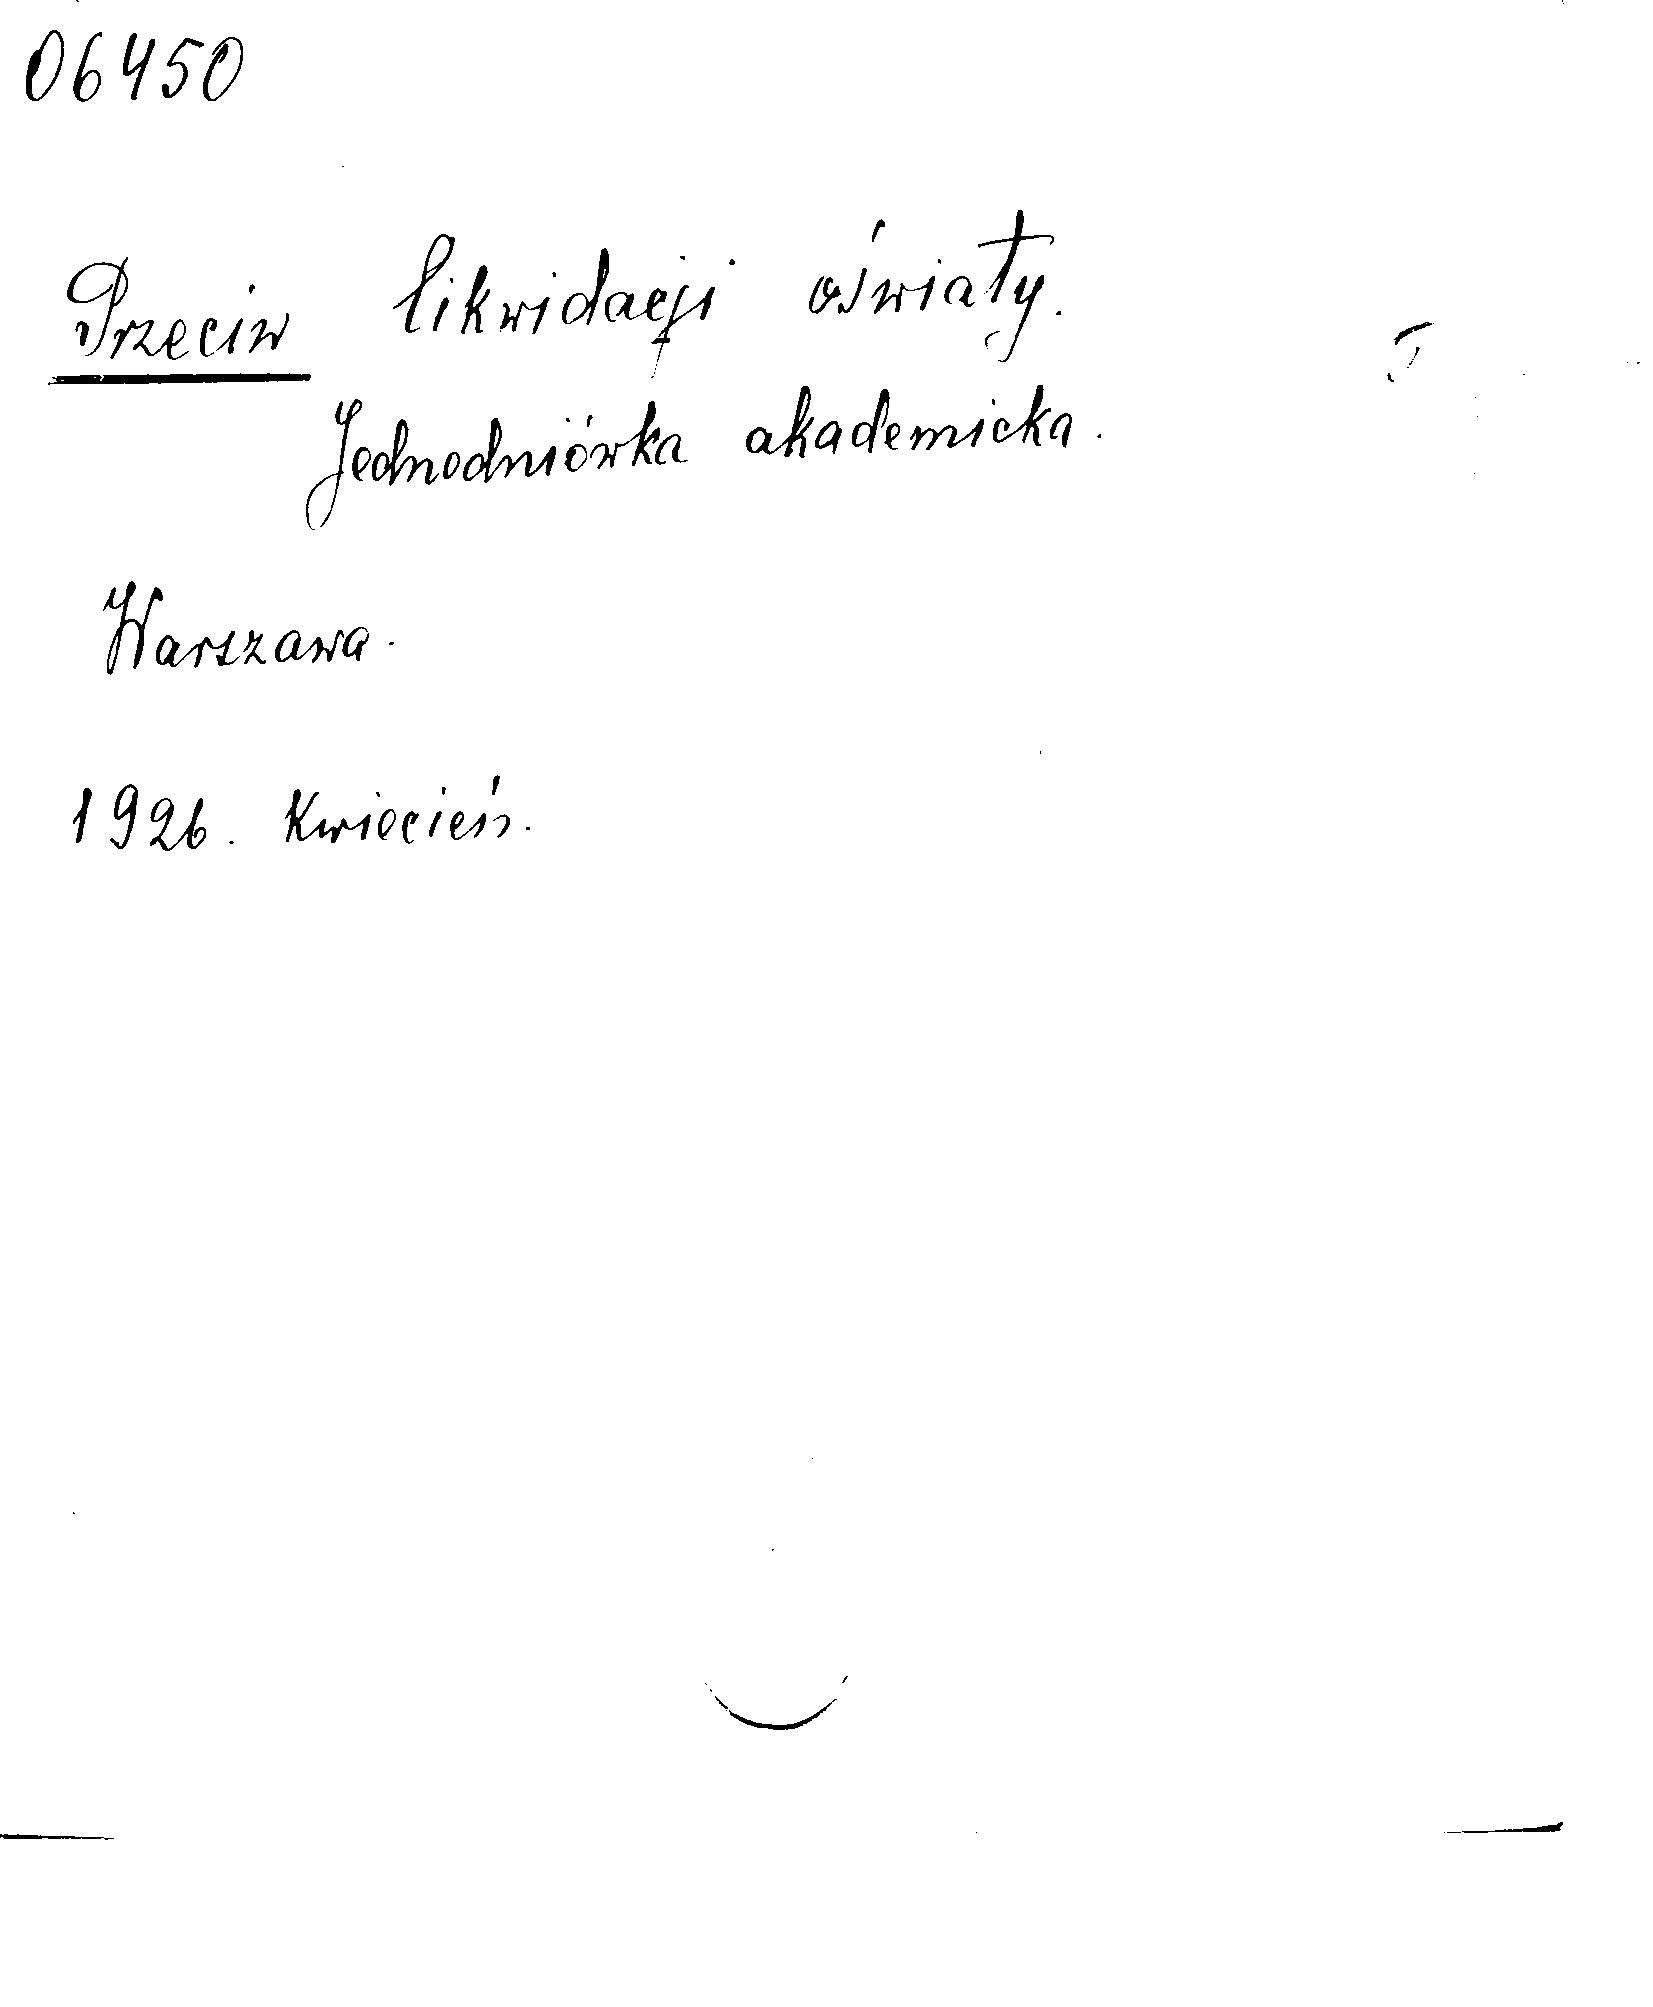 06450
Przeciw likwidacji oświaty.
Jednodniówka akademicka.
Warszawa.
1926. Kwiecień.